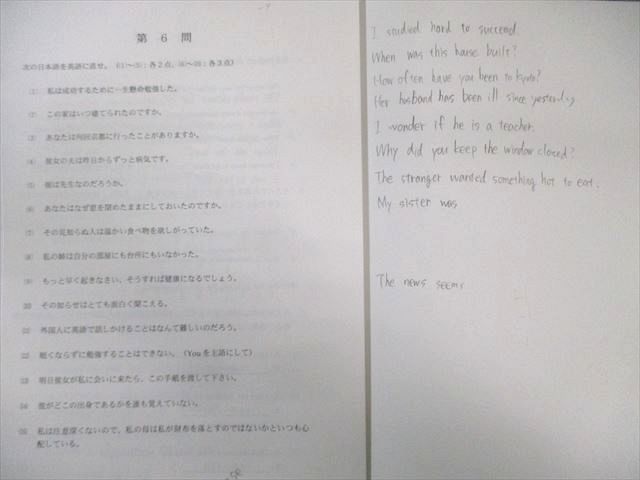 第 6 問
次の日本語を英語に直せ。((1)～(5):各2点,(6)～(15):各3点)
(1) 私は成功するために一生懸命勉強した。
(2) この家はいつ建てられたのですか。
(3) あなたは何回京都に行ったことがありますか。
(4) 彼女の夫は昨日からずっと病気です。
(5) 彼は先生なのだろうか。
(6) あなたはなぜ窓を閉めたままにしておいたのですか。
(7) その見知らぬ人は温かい食べ物を欲しがっていた。
(8) 私の姉は自分の部屋にも台所にもいなかった。
(9) もっと早く起きなさい、そうすれば健康になるでしょう。
(10) その知らせはとても面白く聞こえる。
(11) 外国人に英語で話しかけることはなんて難しいのだろう。
(12) 眠くならずに勉強することはできない。(Youを主語にして)
(13) 明日彼女が私に会いに来たら、この手紙を渡して下さい。
(14) 彼がどこの出身であるかを誰も覚えていない。
(15) 私は注意深くないので、私の母は私が財布を落とすのではないかといつも心
配している。
I studied hard to succeed.
When was this house built?
How often have you been to Kyoto?
Her husband has been ill since yesterday
I wonder if he is a teacher.
Why did you keep the window closed?
The stranger wanted something hot to eat.
My sister was
The news seems